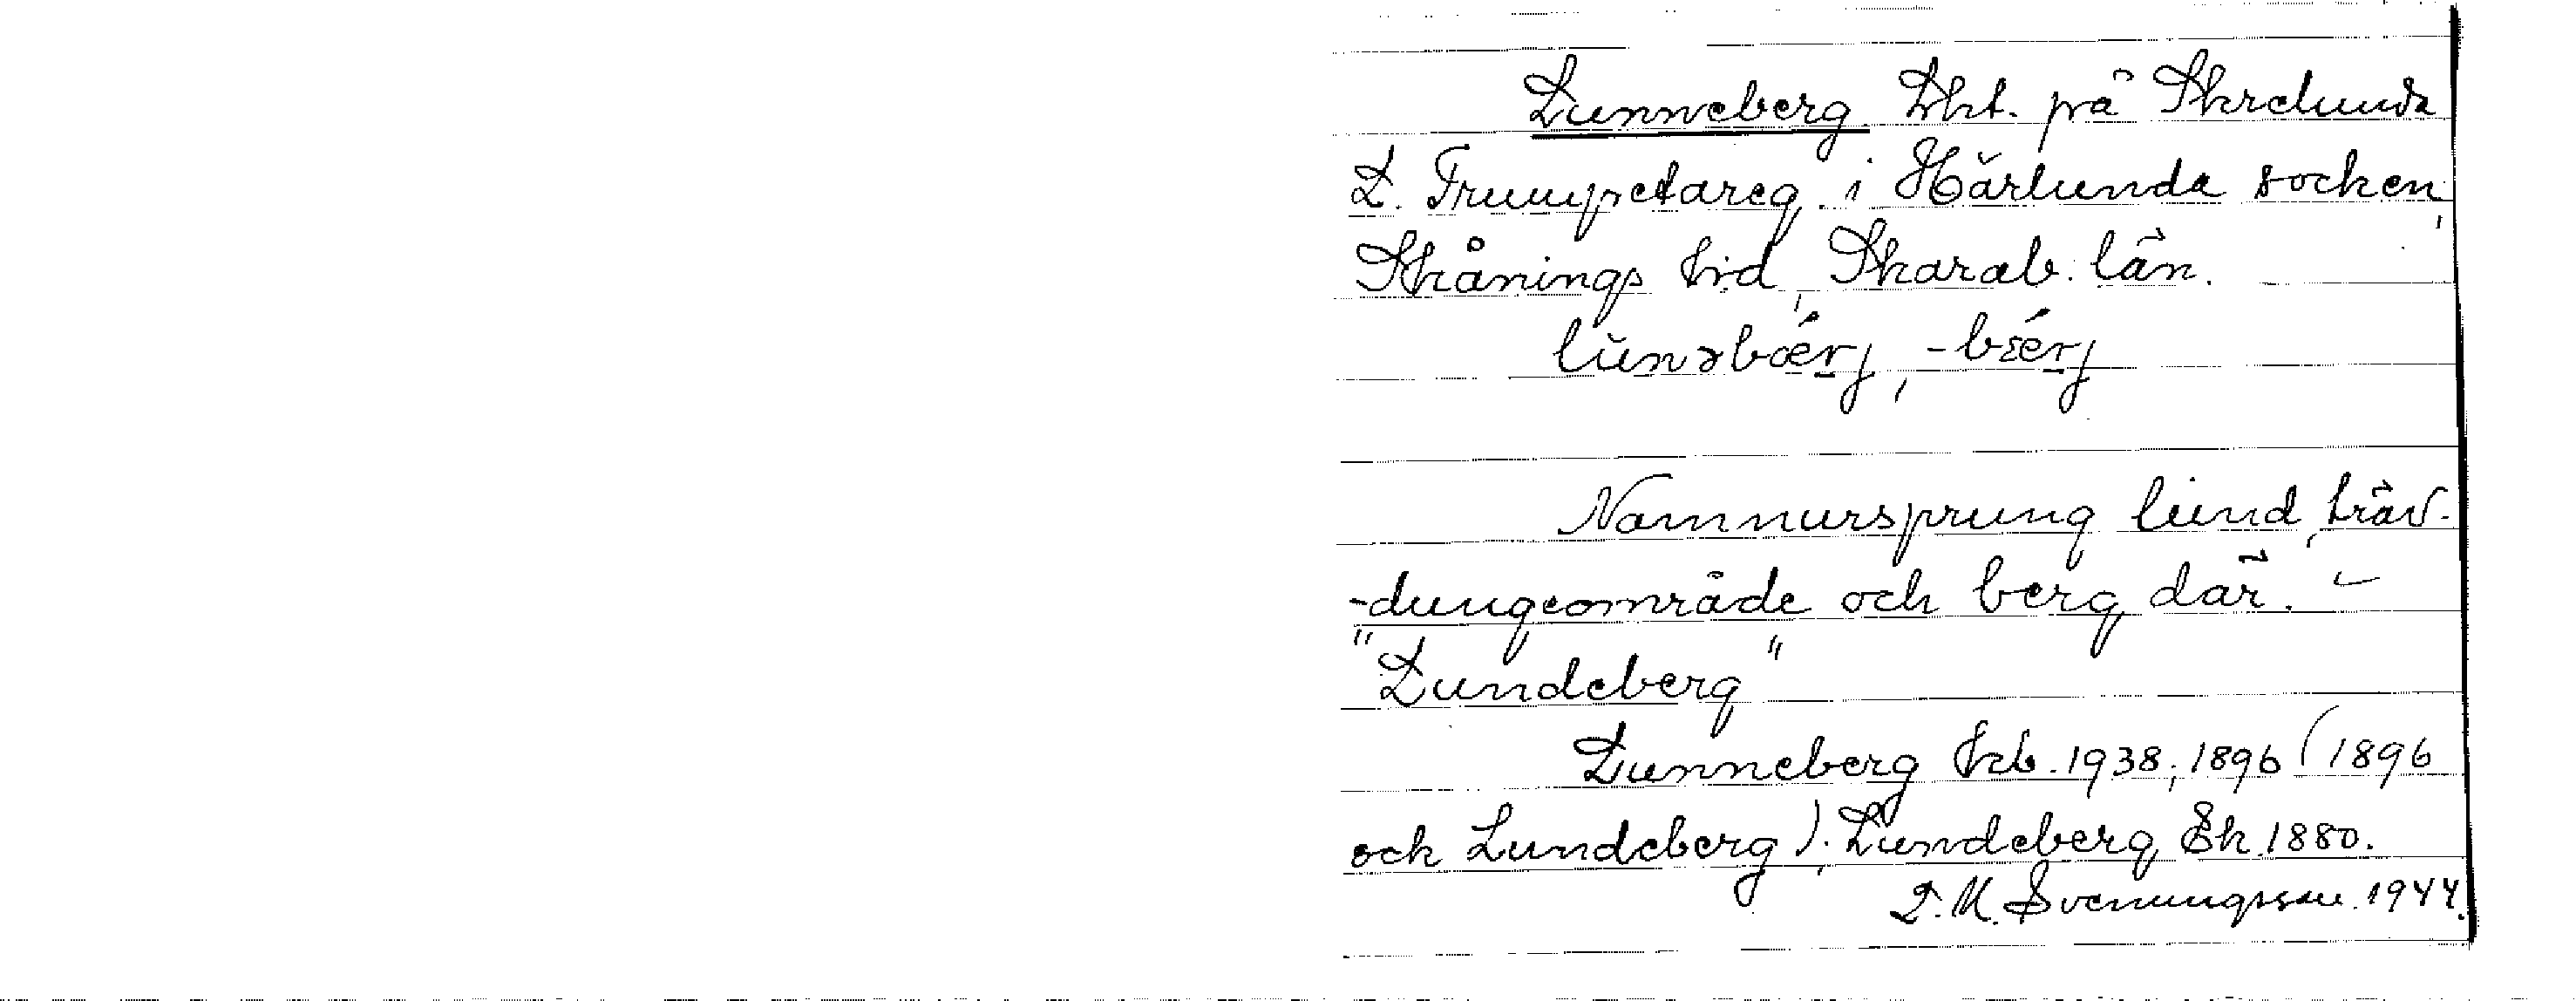 Lunneberg. Lht. på Skrelunda
L. Trumpetareg. i Härlunda socken,
Skånings hd, Skarab. län.
lunəbærj, -bærj
Namnursprung lund, träd-
-dungeområde och berg där. –
"Lundeberg"
Lunneberg kb. 1938; 1896 (1896
och Lundeberg); Lundeberg Ek 1880.
Svenungsson. 1944.